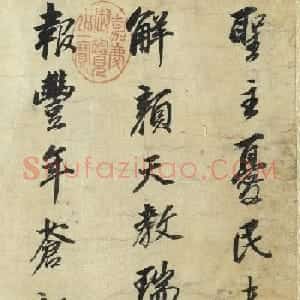 聖主憂民
解顏天教瑞
報豐年蒼
嘉慶御覽之寶
Shufaziliao.com